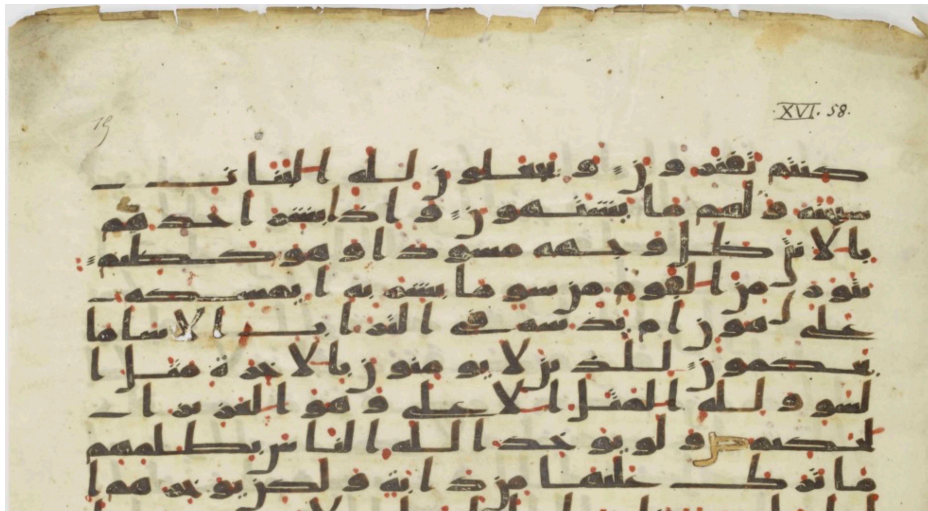 XVI. 58.
كنتم تفترون ويجعلون لله البنات
سبحنه ولهم ما يشتهون واذا بشر احدهم
بالانثى ظل وجهه مسودا وهو كظيم
يتورى من القوم من سو ما بشر به ايمسكه
على هون ام يدسه في التراب الا سا ما
يحكمون للذين لا يومنون بالاخرة مثل ا
لسو ولله المثل الاعلى وهو العزيز ا
لحكيم ولو يوخذ الله الناس بظلمهم
ما ترك عليها من دابة ولكن يوخرهم ا